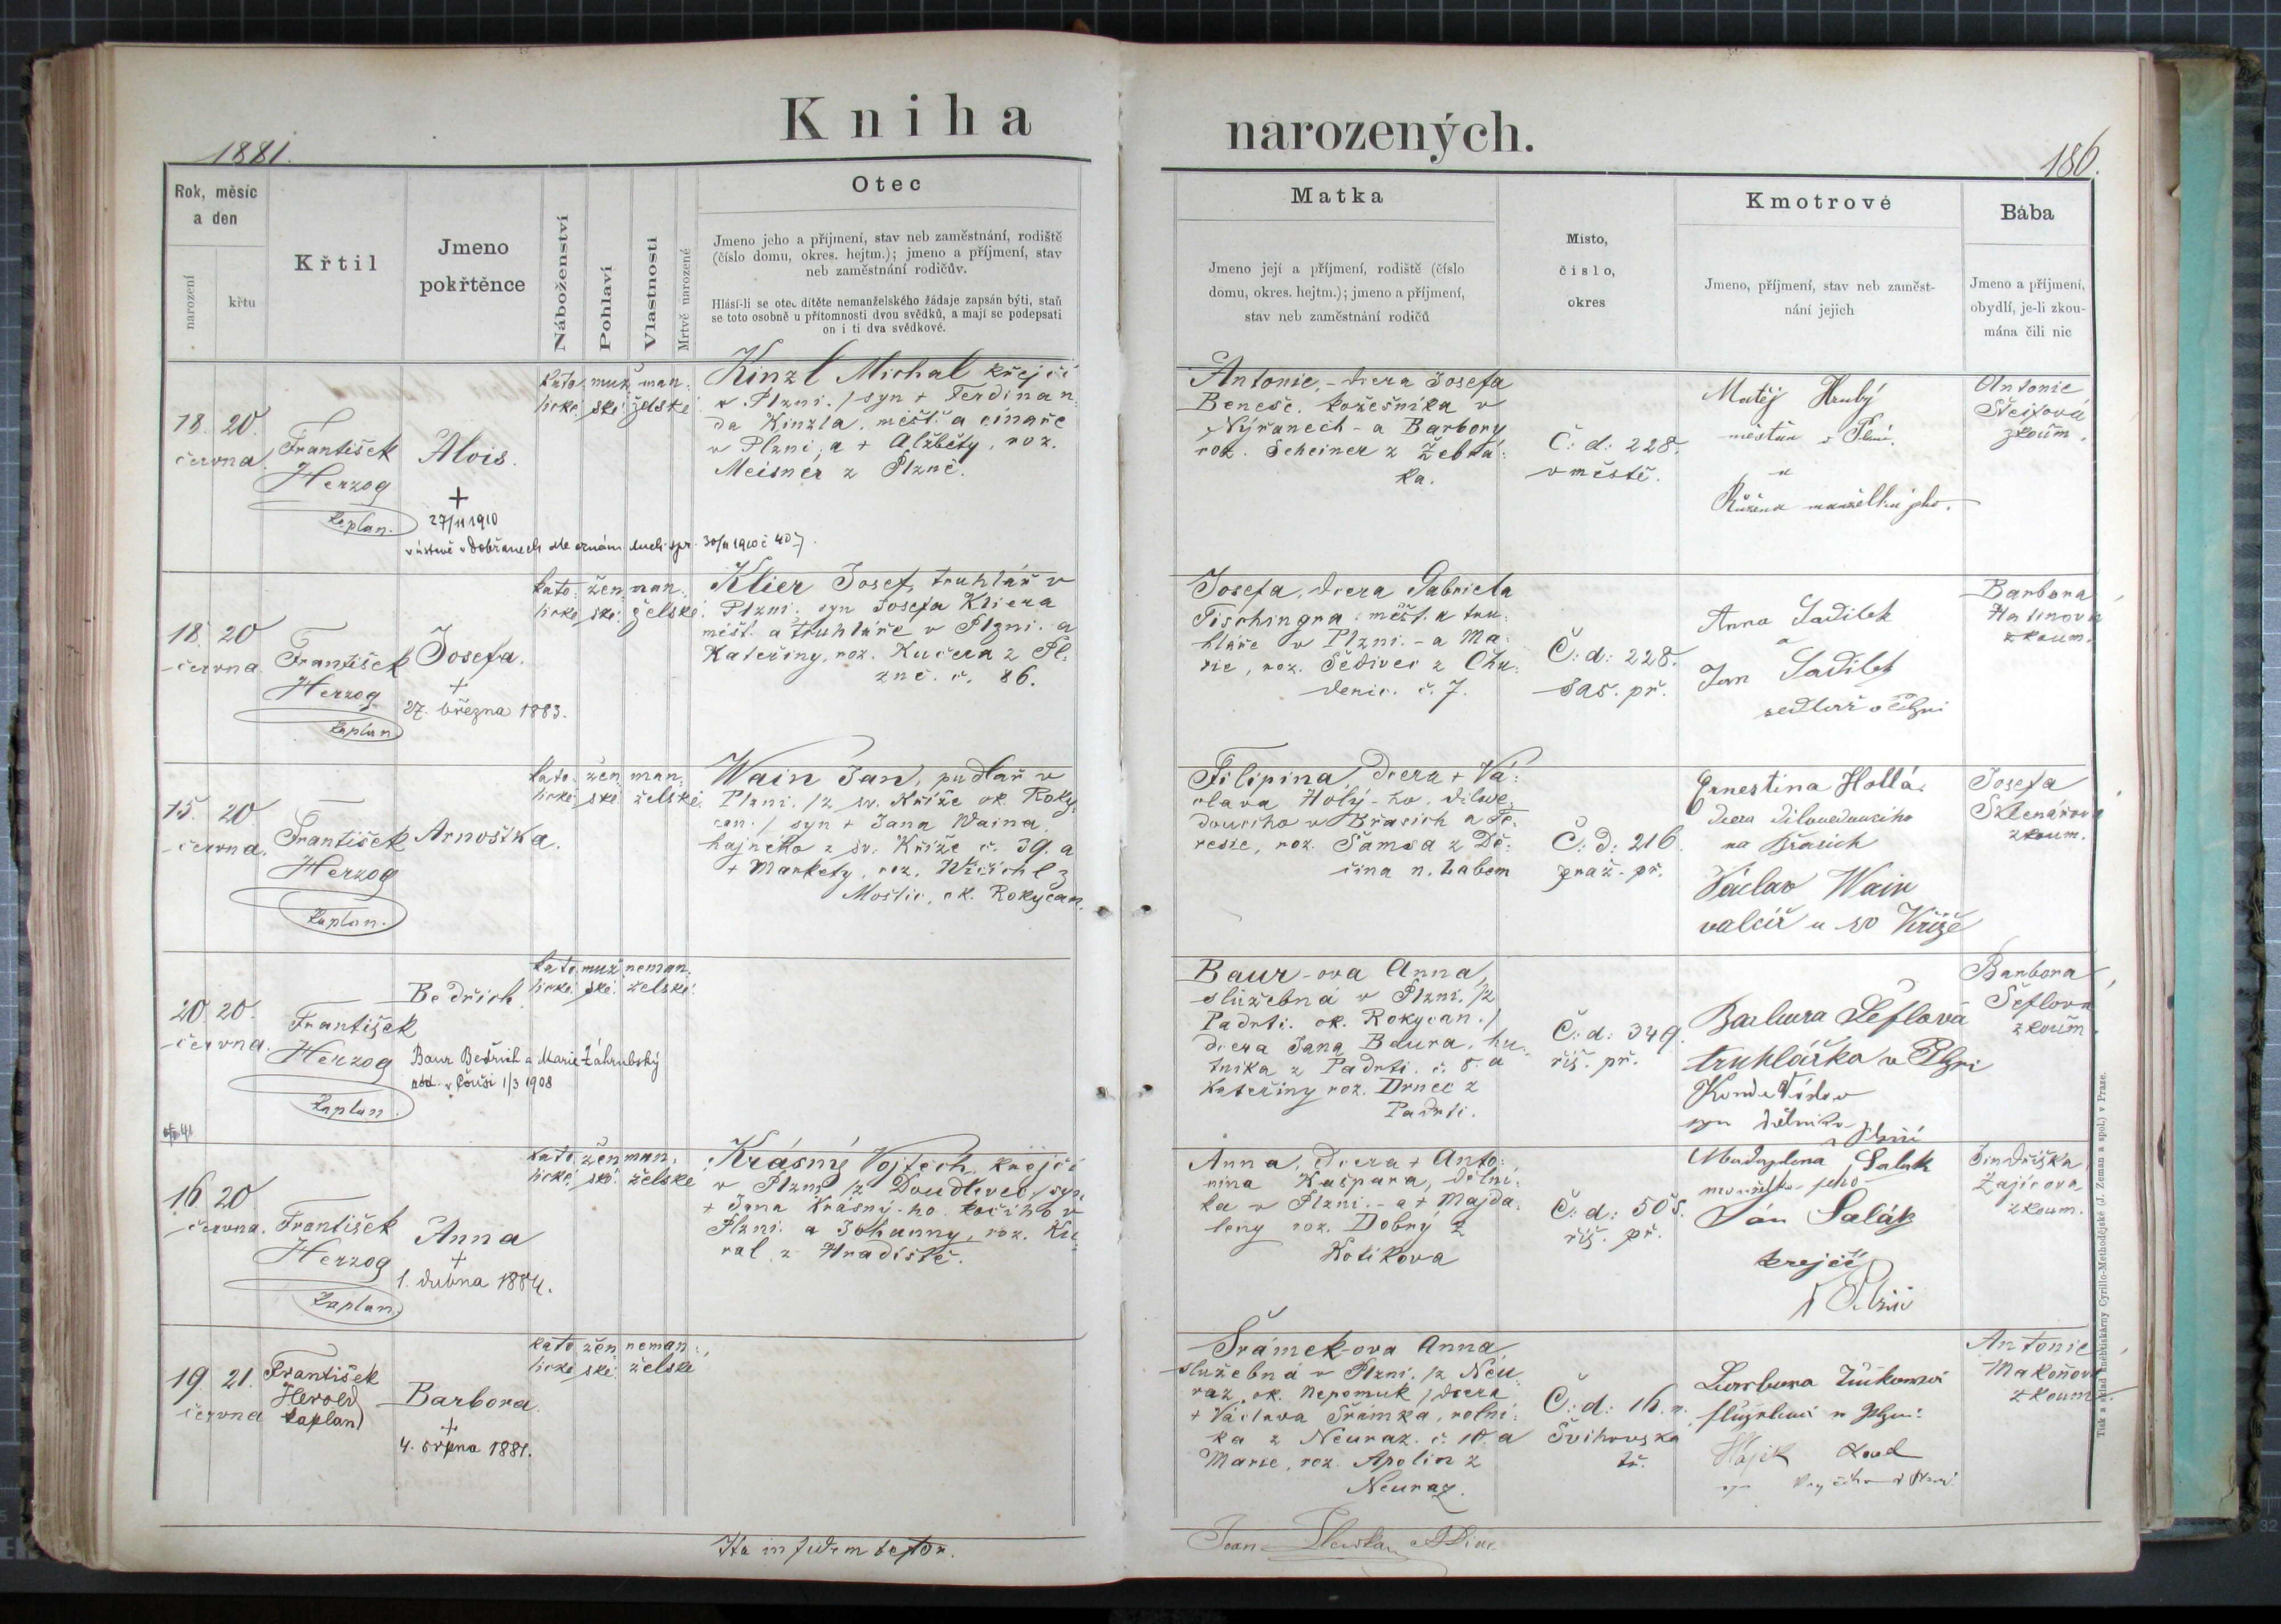 Kniha
narozených.
1881.
186.
Rok, měsíc
a den
narození
křtu
Křtil
Jmeno
pokřtěnce
Náboženství
Pohlaví
Vlastnosti
Mrtvě narozené
Otec
Jmeno jeho a přijmení, stav neb zaměstnání, rodiště
(číslo domu, okres. hejtm.); jmeno a příjmení, stav
neb zaměstnání rodičův.
Hlásí-li se otec dítěte nemanželského žádaje zapsán býti, staň
se toto osobně u přítomnosti dvou svědků, a mají se podepsati
on i ti dva svědkové.
Matka
Jmeno její a příjmení, rodiště (číslo
domu, okres. hejtm.); jmeno a příjmení,
stav neb zaměstnání rodičů
Místo,
číslo,
okres
Kmotrové
Jmeno, příjmení, stav neb zaměst-
nání jejich
Bába
Jmeno a příjmení,
obydlí, je-li zkou-
mána čili nic
18. 20.
června.
František
Herzog
kaplan.
Alois.
+
27/11 1910
v ústavě v Dobřanech dle oznám. duch. spr. 30/11 1910 č 407.
kato muž man.
lické ské želské
Kinzl Michal krejčí
v Plzni. / syn + Ferdinan
da Kinzla, měšť. a cínaře
v Plzni, a + Alžběty, roz.
Meisner z Plzně.
Antonie, - dcera Josefa
Beneše, kožešníka v
Nýřanech - a Barbory
roz. Scheiner z Žebrá:
ka.
Č: d: 228.
v městě.
Matěj Hrubý
měšťan v Plzni.
a
Růžena manželka jeho.
Antonie
zkoum.
18. 20
června.
František
Herzog
kaplan
Josefa.
+
27. března 1883.
kato: žen man.
lické ské želské.
Klier Josef, truhlář v
Plzni. syn Josefa Kliera
měšť. a truhláře v Plzni. a
Kateřiny, roz. Kučera z Pl:
zně. č. 86.
Josefa, dcera Gabriela
Tischingra, měšť. a tru:
hláře v Plzni. - a Ma:
rie, roz. Šedivec z Chu:
denic. č. 7.
Č: d: 228.
sas. př.
Anna Sadílek
a
Jan Sadílek
sedlář v Plzni
Barbora
Halinová
zkoum.
15. 20
června.
František
Herzog
kaplan.
Arnoštka.
kato žen man:
lické ské želské.
Wain Jan, pudlař v
Plzni. /z sv. Kříže ok. Roky:
can. / syn + Jana Waina,
hajného z sv. Kříže č. 39. a
+ Markety, roz. z
Moštic, ok. Rokycan.
Filipina, dcera + Vá:
clava Holý-ho, dílove:
doucího v Břasích a Te:
resie, roz. Šamsa z Dě:
čína n. Labem
Č: d: 216
praž. př.
Ernestina Hollá
dcera dílovedoucího
na Břasích
Václav Wain
valcíř u sv Kříže
Josefa
Sklenářová
zkoum.
20. 20.
června.
František
Herzog
kaplan.
Bedřich.
Baur Bedřich a Marie Záhrubský
odd. v 1/3 1908
kato. muž neman.
lické ské. želské.
Baur-ova Anna,
služebná v Plzni. /z
Padrti. ok. Rokycan./
dcera Jana Baura, hu:
tníka z Padrti. č. 8. a
Kateřiny roz. Drnec z
Padrti.
Č: d: 349.
říš. př.
Barbora Šeflová
truhlářka v Plzni
syn dělníka
v Plzni
Barbora
Šeflova
zkoum.
16 20
června.
František
Herzog
kaplan
Anna
+
1. dubna 1884.
kato žen man.
lické ské. želske
Krásný Vojtěch, krejčí
v Plzni /z Doudlevec, /syn
+ Jana Krásný-ho kočího v
Plzni. a Johanny, roz. Ku
ral z Hradiště.
Anna, dcera + Anto:
nína Kašpara, dělní:
ka v Plzni. - a + Majda:
leny roz. Dobrý z
Kotíkova
Č: d: 505.
říš. př.
Madaplena Salak
manželka jeho
Ján Salák
krejčí
v Plzni
Jindřiška
Zajícova
zkoum.
19. 21.
června
František
Herold
kaplan)
Barbora.
+
4. srpna 1881.
kato žen neman.
lické ské. želské
Šrámek-ova Anna
služebná v Plzni. /z Neu
raz, ok. Nepomuk, /dcera
+ Václava Šrámka, rolní:
ka z Neuraz. č. 10. a
Marie, roz. Apolin z
Neuraz.
Č: d: 16. n.
Švihovská
tř.
Barbora
služebná v Plzni
Hájek
Antonie
Makoňova
zkoum.
Ita in fidem testor.
Tisk a sklad knihtiskárny Cyrillo-Methodějské (J. Zeman a spol.) v Praze.